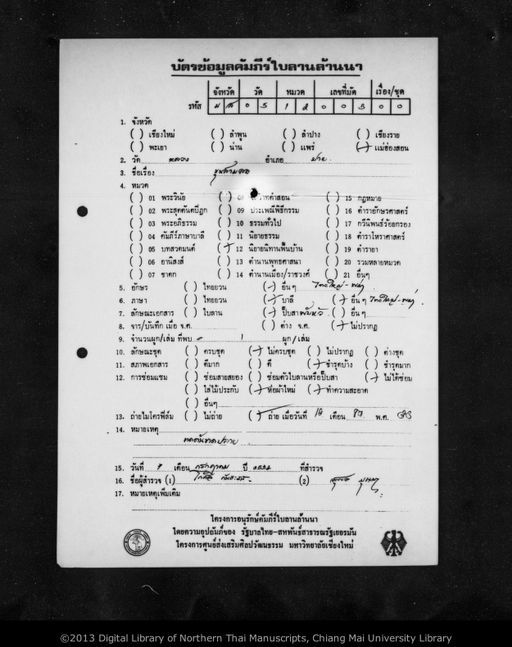 บัตรข้อมูลคัมภีร์ใบลานล้านนา
จังหวัด วัด หมวด เลขที่มัด เรื่อง/ชุด
รหัส 0 5 1 2 0 0 3 0 0
1. จังหวัด
( ) เชียงใหม่ ( ) ลำพูน ( ) ลำปาง ( ) เชียงราย
( ) พะเยา ( ) น่าน ( ) แพร่ ( ) แม่ฮ่องสอน
2. วัด หลวง อำเภอ ปาย
3. ชื่อเรื่อง
4. หมวด
( ) 01 พระวินัย ( ) คำสอน ( ) 15 กฎหมาย
( ) 02 พระสุตตันตปิฎก ( ) 09 ประเพณีพิธีกรรม ( ) 16 ตำรายาักษรศาสตร์
( ) 03 พระอภิธรรม ( ) 10 ธรรมทั่วไป ( ) 17 กวีนิพนธ์ร้อยกรอง
( ) 04 คัมภีร์ภาษาบาลี ( ) 11 นิยายธรรม ( ) 18 ตำราโหราศาสตร์
( ) 05 บทสวดมนต์ ( ) 12 นิยายนิทานพื้นบ้าน ( ) 19 ตำรายา
( ) 06 อานิสงส์ ( ) 13 ตำนานพุทธศาสนา ( ) 20 รวมหลายหมวด
( ) 07 ชาดก ( ) 14 ตำนานเมือง/ราชวงศ์ ( ) 21 อื่นๆ
5. อักษร ( ) ไทยยวน ( ) อื่น ๆ ไทใหญ่-พม่า
6. ภาษา ( ) ไทยยวน ( ) บาลี ( ) อื่น ๆ ไทใหญ่-พม่า
7. ลักษณะเอกสาร ( ) ใบลาน ( ) ปั๊บสา ( ) อื่น ๆ
8. จาร/บันทึก เมื่อ จ.ศ. ( ) ต่าง จ.ศ. ( ) ไม่ปรากฏ
9. จำนวนผูก/เล่ม ที่พบ 1 ผูก/เล่ม
10. ลักษณะชุด ( ) ครบชุด ( ) ไม่ครบชุด ( ) ไม่ปรากฏ ( ) ต่างชุด
11. สภาพเอกสาร ( ) ดีมาก ( ) ดี ( ) ชำรุดบ้าง ( ) ชำรุดมาก
12. การซ่อมแซม ( ) ซ่อมสายสยอง ( ) ซ่อมตัวใบลานหรือปั๊บสา ( ) ไม่ได้ซ่อม
( ) ใส่ไม้ประกับ ( ) ห่อผ้าใหม่ ( ) ทำความสะอาด
( ) อื่นๆ
13. ถ่ายไมโครฟิล์ม ( ) ไม่ถ่าย ( ) ถ่าย เมื่อวันที่ 16 เดือน พ.ศ.
14. หมายเหตุ
15. วันที่ 9 เดือน กรกฎาคม ปี ที่สำรวจ
16. ชื่อผู้สำรวจ (1) (2)
17. หมายเหตุเพิ่มเติม
โครงการอนุรักษ์คัมภีร์ใบลานล้านนา
โดยความอุปถัมภ์ของ รัฐบาลไทย-สหพันธ์สาธารณรัฐเยอรมัน
โครงการศูนย์ส่งเสริมศิลปวัฒนธรรม มหาวิทยาลัยเชียงใหม่
©2013 Digital Library of Northern Thai Manuscripts, Chiang Mai University Library